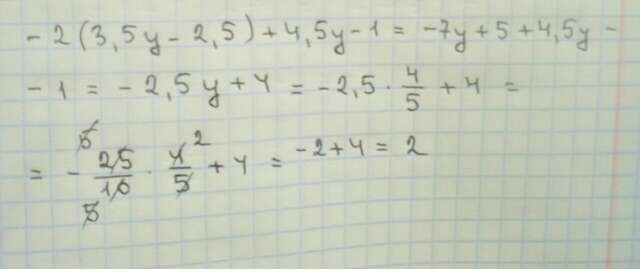 - 2 (3,5y - 2,5) + 4,5y - 1 = -7y + 5 + 4,5y -
- 1 = - 2,5y + 4 = -2,5 · 4/5 + 4 =
= - 25/10 · 4/5 + 4 = -2 + 4 = 2
5 2
5